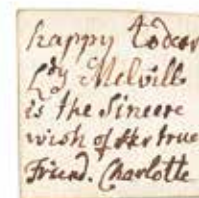 happy to dear
Ldy Melvill
is the Sincere
wish of Her true
Friend. Charlotte